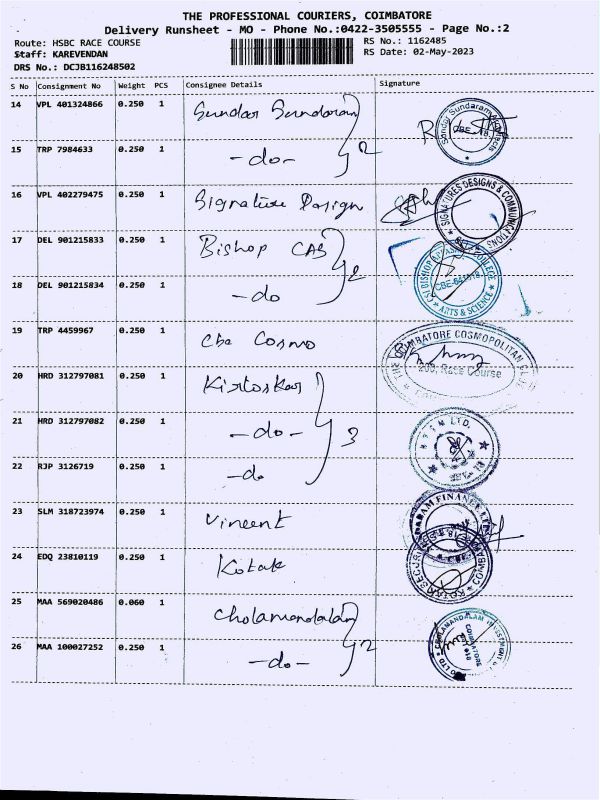 THE PROFESSIONAL COURIERS, COIMBATORE
Delivery Runsheet - MO - Phone No.:0422-3505555 - Page No.:2
Route: HSBC RACE COURSE RS No.: 1162485
Staff: KAREVENDAN RS Date: 02-May-2023
DRS No.: DCJB116248502
S No Consignment No Weight PCS Consignee Details Signature
14 VPL 401324866 0.250 1 Sundar Sundaram
15 TRP 7984633 0.250 1 -do- 2
16 VPL 402279475 0.250 1 Signature Design
SIGNATURES DESIGNS & COMMUNICATIONS
17 DEL 901215833 0.250 1 Bishop CAS
18 DEL 901215834 0.250 1 -do 2
ARTS & SCIENCE
19 TRP 4459967 0.250 1 Cbe Cosmo
COIMBATORE COSMOPOLITAN
Race Course
20 HRD 312797081 0.250 1 Kirloskar
21 HRD 312797082 0.250 1 -do- 3
22 RJP 3126719 0.250 1 -do
23 SLM 318723974 0.250 1 Vincent
24 EDQ 23810119 0.250 1 Kotak
25 MAA 569020486 0.060 1 Cholamandalam
26 MAA 100027252 0.250 1 -do- 2
CHOLAMANDALAM INVESTMENT
COIMBATORE